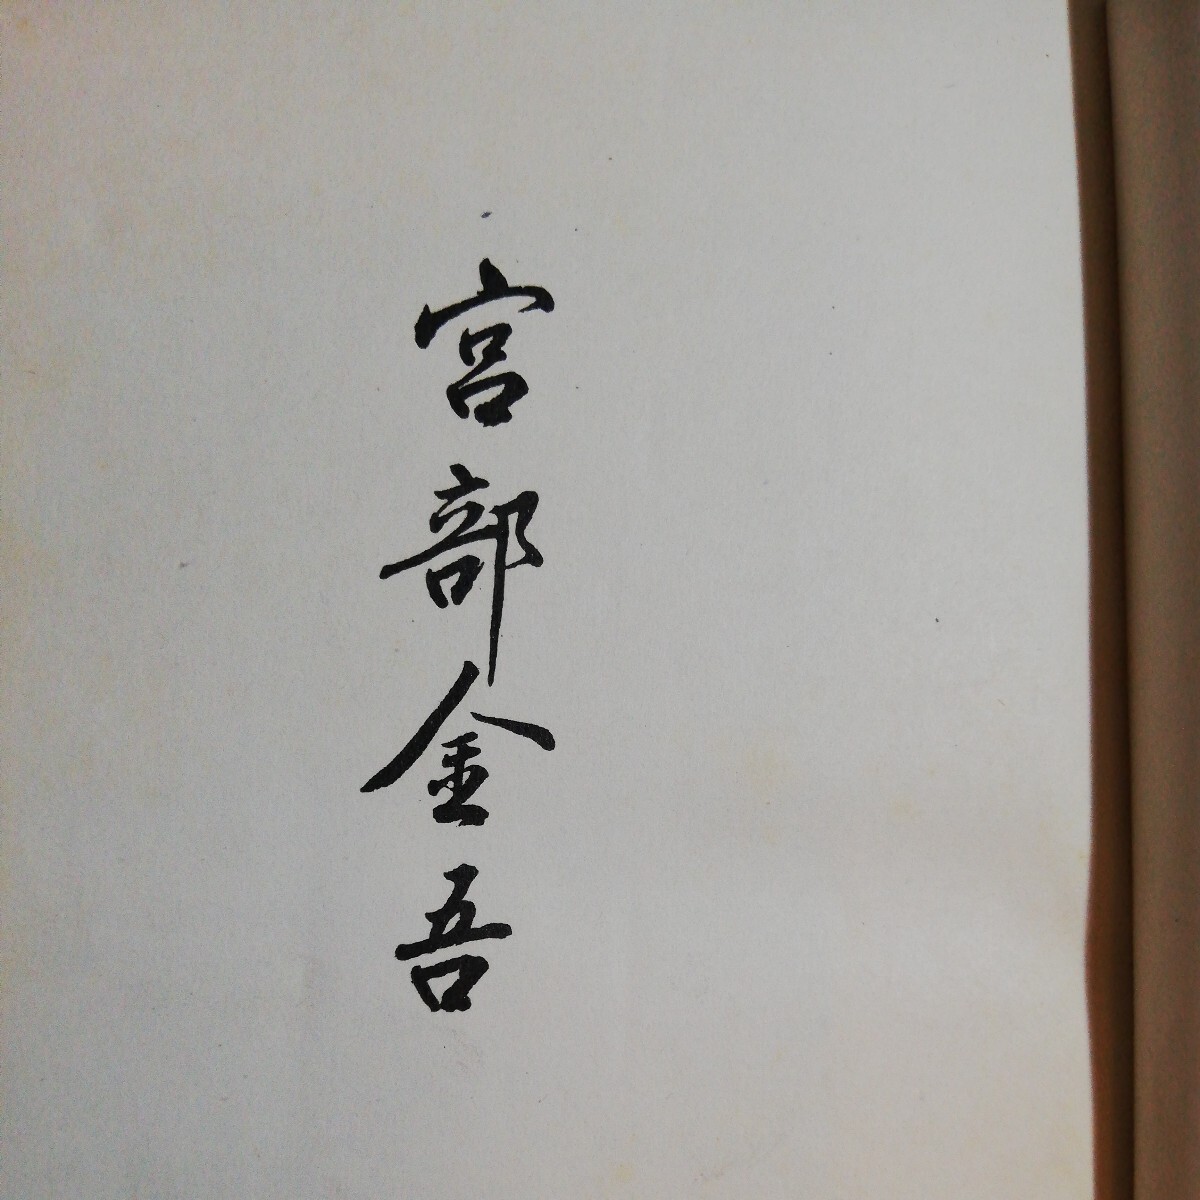 宮部金吾